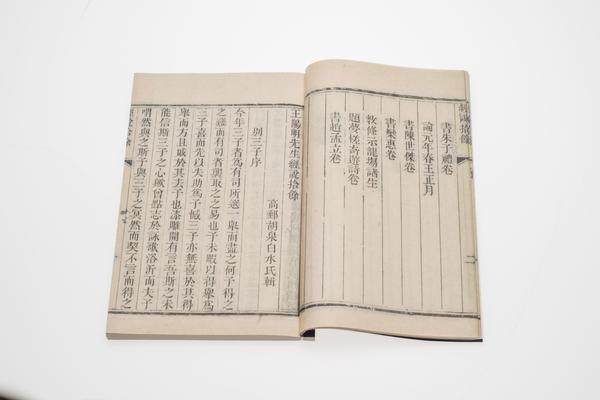 經說拾餘
書朱子禮卷
論元年春王正月
書陳世傑卷
書欒惠卷
教條示龍場諸生
題夢槎奇遊詩卷
書趙孟立卷
王陽明先生經說拾餘
高郵胡泉白水氏輯
別三子序
今年三子者爲有司所選一舉而盡之何予得之
之難而有司者襲取之之易也予未暇以得舉爲
三子喜而先以失助爲予憾三子亦無喜於其得
舉而方且戚於其去予也漆雕開有言吾斯之未
能信斯三子之心歟曾點志於詠歌浴沂而夫子
喟然與之斯予與三子之冥然而契不言而得之